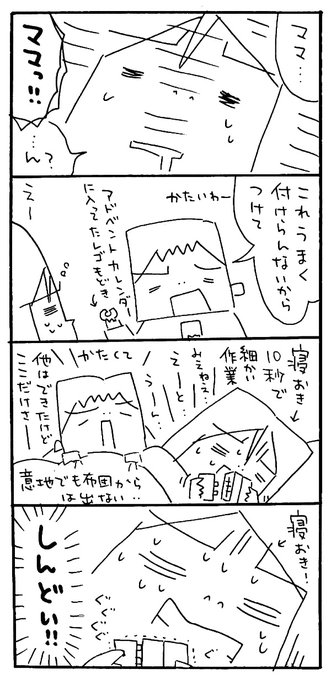 ママ…
ママっ!!
…ん?
これうまく
付けらんないから
つけて
かたいわー
アドベントカレンダー
に入ってたレゴもどき
えー
寝おき
10秒で
細かい
作業
みてねぇ
えーと
うーん…
かたくて
他はできたけど
ここだけさー
意地でも布団から
は出ない‥
寝おき!
ぐぐぐ
しんどい!!